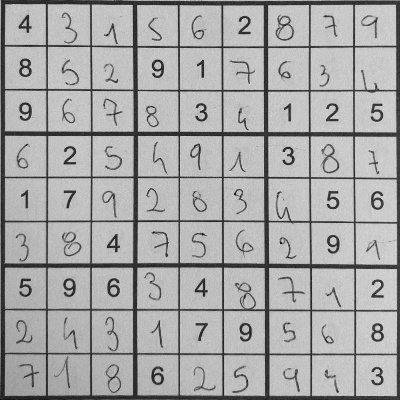 4 3 1 5 6 2 8 7 9
8 5 2 9 1 7 6 3 4
9 6 7 8 3 4 1 2 5
6 2 5 4 9 1 3 8 7
1 7 9 2 8 3 4 5 6
3 8 4 7 5 6 2 9 1
5 9 6 3 4 8 7 1 2
2 4 3 1 7 9 5 6 8
7 1 8 6 2 5 9 4 3